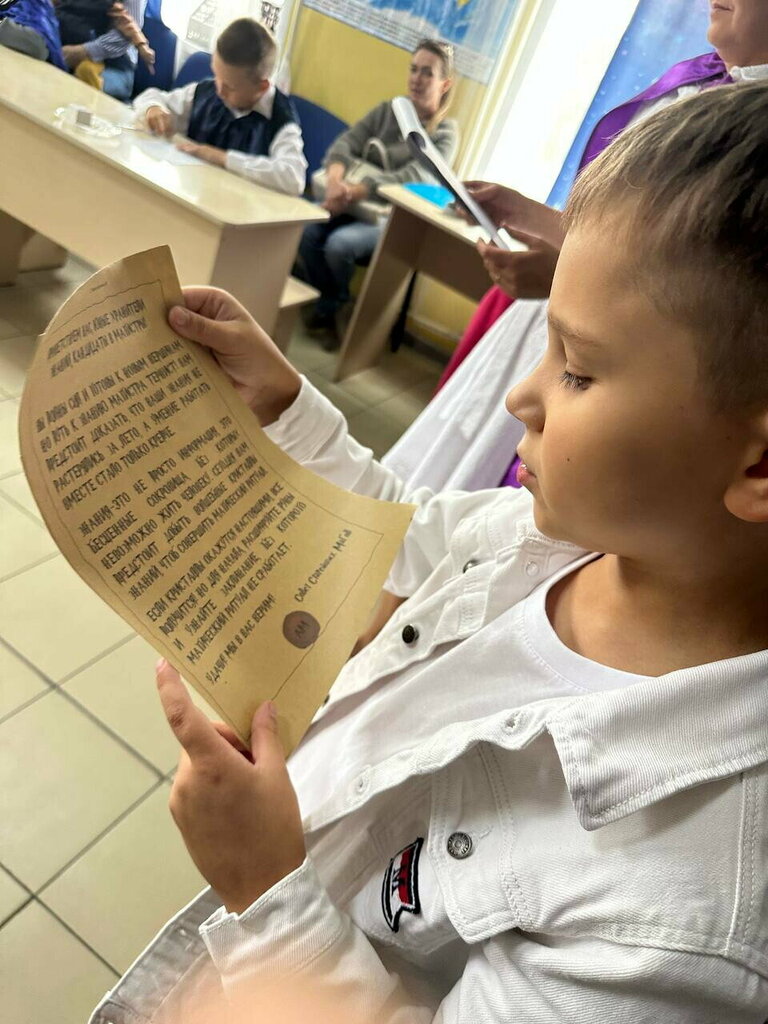 Приветствуем вас, юные хранители
знаний, кандидаты в майстры!
Вы полны сил и готовы к новым вершинам,
но путь к знанию майстра тернист! Вам
предстоит доказать что ваши знания не
растерялись за лето, а умение работать
вместе стало только крепче.
Знания-это не просто информация, это
бесценные сокровища, без которых
невозможно жить человеку! Сегодня вам
предстоит добыть волшебные кристаллы
знаний, чтоб совершить магический ритуал.
Если кристаллы окажутся настоящими, все
получится! Но для начала расшифруйте руны
и узнайте заклинание, без которого
магический ритуал не сработает.
Удачи! Мы в вас верим!
Совет Старейшин МАГов
АМ